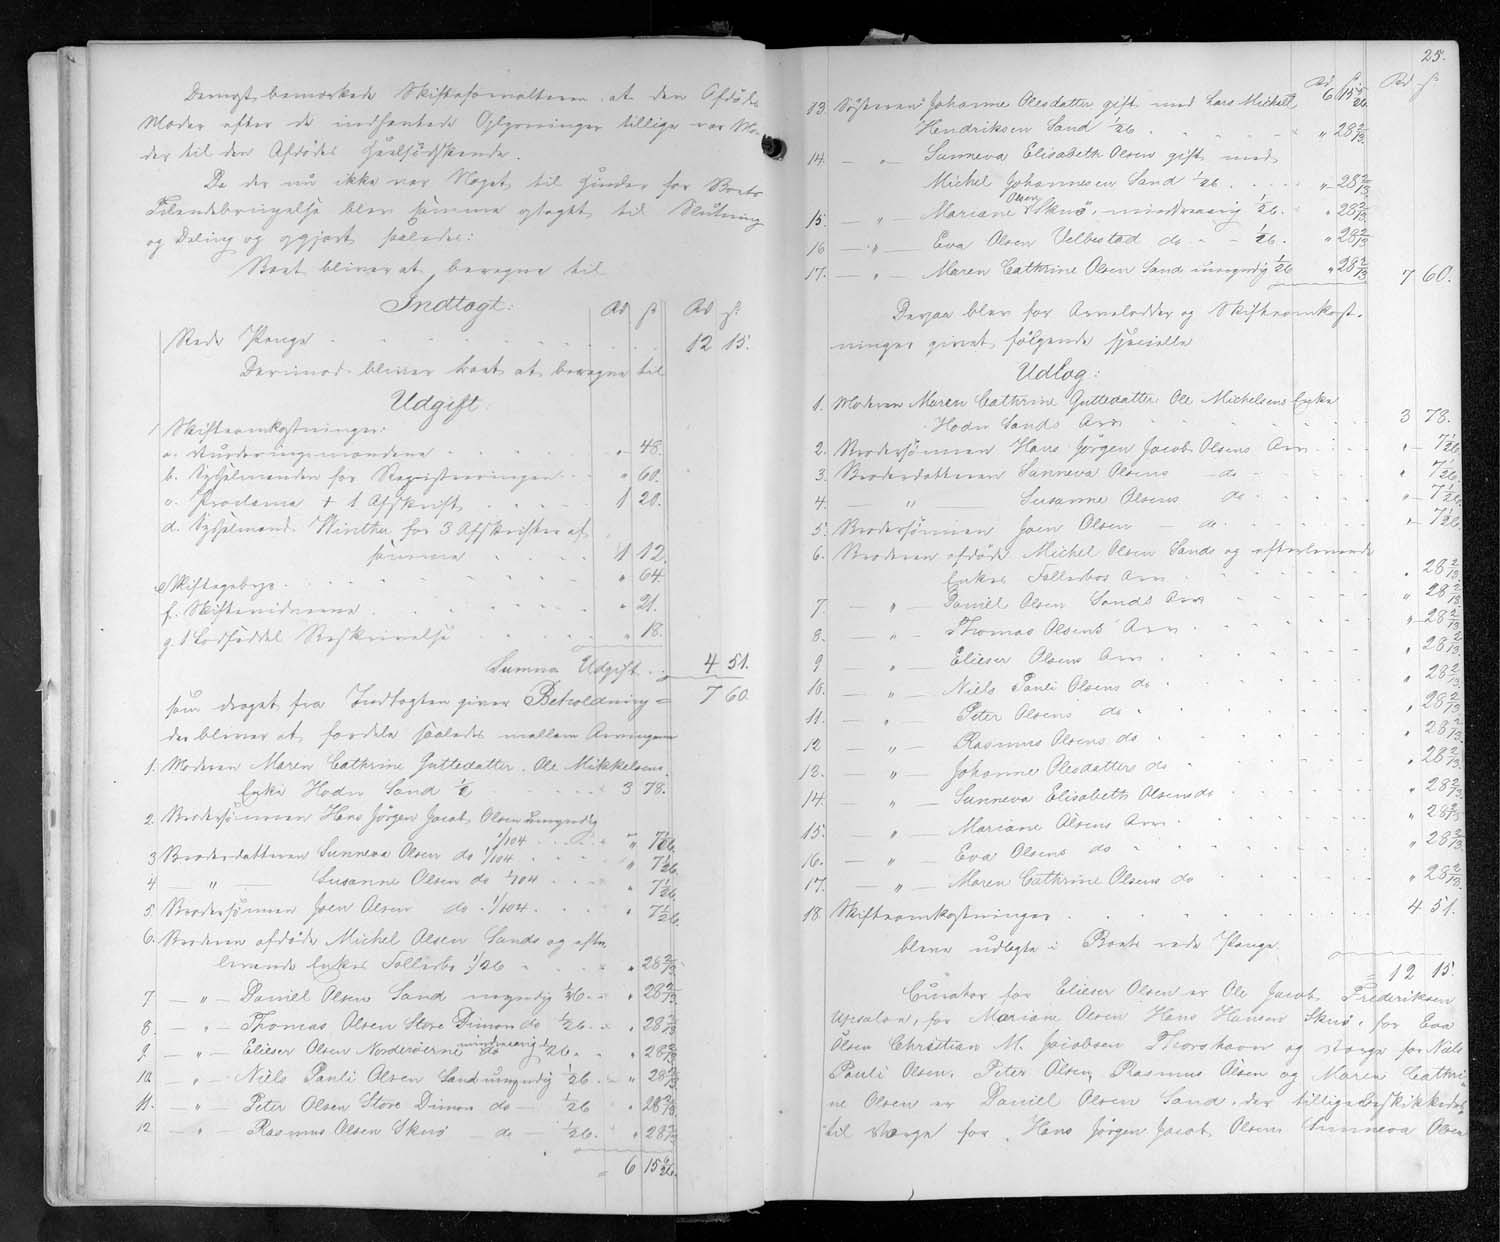 Dernæst bemærkede Skifteforvalteren at den Afdøde
Moder efter de indhentede Oplysninger tillige var Mo-
der til den Afdødes Halvsødskende.
Da der nu ikke var Noget til Hinder for Boets
Tilendebringelse blev samme optaget til Slutning
og Deling og opgjort saaledes:
Boet bliver at beregne til
Indtægt: Rd ß Rd ß
Rede Penge 12 15.
Derimod bliver Boet at beregne til
Udgift:
1 Skifteomkostninger:
a. Vurderingsmændene " 48.
b. Sysselmanden for Registreringen " 60.
c. Proclama + 1 Afskrift 1 20.
d. Sysselmand Winther for 3 Afskrifter af
samme 1 12.
e Skiftegebyr " 64
f. Skiftevidnerne " 21.
g. 1 Lodseddel Beskrivelse " 18.
Summa Udgift 4 51.
som draget fra Indtægten giver Beholdning = 7 60
der bliver at fordele saaledes mellem Arvingerne
1. Moderen Maren Cathrine Guttedatter, Ole Mikkelsens
Enke Hodn Sand ½ " 3 78.
2. Brodersønnen Hans Jørgen Jacob Olsen umyndig
1/104 " 7 1/26.
3 Broderdatteren Sunneva Olsen do 1/104 " 7 1/26.
4 — " — Susanne Olsen do 1/104 " 7 1/26.
5. Brodersønnen Joen Olsen do 1/104 " 7 1/26.
6. Broderen afdøde Michel Olsen Sands og efter-
levende Enkes Fællesbo 1/26 " 28 2/13.
7 — " — Daniel Olsen Sand myndig 1/26 " 28 2/13.
8. — " — Thomas Olsen Store Dimon do 1/26. " 28 2/13
9. — " — Elieser Olsen Norderøerne mindreaarig 1/26. " 28 2/13
10. — " — Niels Pauli Olsen Sand umyndig 1/26. " 28 2/13
11. — " — Peter Olsen Store Dimon do — 1/26 " 28 2/13
12 — " — Rasmus Olsen Skuø — do — 1/26. " 28 2/13
= 6 15 6/26.
25.
Rd ß Rd ß
6 15 6/26
13. Søsteren Johanne Olesdatter gift med Lars Michael
Hendriksen Sand 1/26 " 28 2/13.
14. — " — Sunneva Elisabeth Olsen gift med
Michel Johannesen Sand 1/26. " 28 2/13
15. — " — Mariane Olsen Skuø, mindreaarig 1/26. " 28 2/13
16 — " — Eva Olsen Velbestad do — 1/26. " 28 2/13
17. — " — Maren Cathrine Olsen Sand umyndig 1/26 " 28 2/13 7 60.
Derpaa blev for Arvelodder og Skifteomkost-
ninger givet følgende specielle
Udlæg:
1. Moderen Maren Cathrine Guttedatter Ole Michelsens Enke
Hodn Sands Arv 3 78.
2. Brodersønnen Hans Jørgen Jacob Olsens Arv " 7 1/26
3. Broderdatteren Sunneva Olsens — do — " 7 1/26.
4. — " — Susanne Olsens do " 7 1/26.
5. Brodersønnen Joen Olsen — do — " 7 1/26.
6. Broderen afdøde Michel Olsen Sands og efterlevende
Enkes Fællesbos Arv " 28 2/13.
7. — " — Daniel Olsen Sands Arv " 28 2/13.
8. — " — Thomas Olsens Arv " 28 2/13
9 — " — Elieser Olsens Arv " 28 2/13.
10. — " — Niels Pauli Olsens do " 28 2/13.
11. — " — Peter Olsens do " 28 2/13.
12 — " — Rasmus Olsens do " 28 2/13.
13. — " — Johanne Olesdatters do " 28 2/13.
14. — " — Sunneva Elisabeth Olsens do " 28 2/13.
15. — " — Mariane Olsens Arv " 28 2/13.
16. — " — Eva Olsens do " 28 2/13.
17. — " — Maren Cathrine Olsens do " 28 2/13.
18. Skifteomkostninger 4 51.
bleve udlagte i Boets rede Penge.
= 12 15.
Curator for Elieser Olsen er Ole Jacob Frederiksen
for Mariane Olsen Hans Hansen Skuø, for Eva
Olsen Christian M. Jacobsen Thorshavn og Værge for Niels
Pauli Olsen, Peter Olsen, Rasmus Olsen og Maren Cathri-
ne Olsen er Daniel Olsen Sand, der tillige beskikkedes
til Værge for Hans Jørgen Jacob Olsen Sunneva Olsen